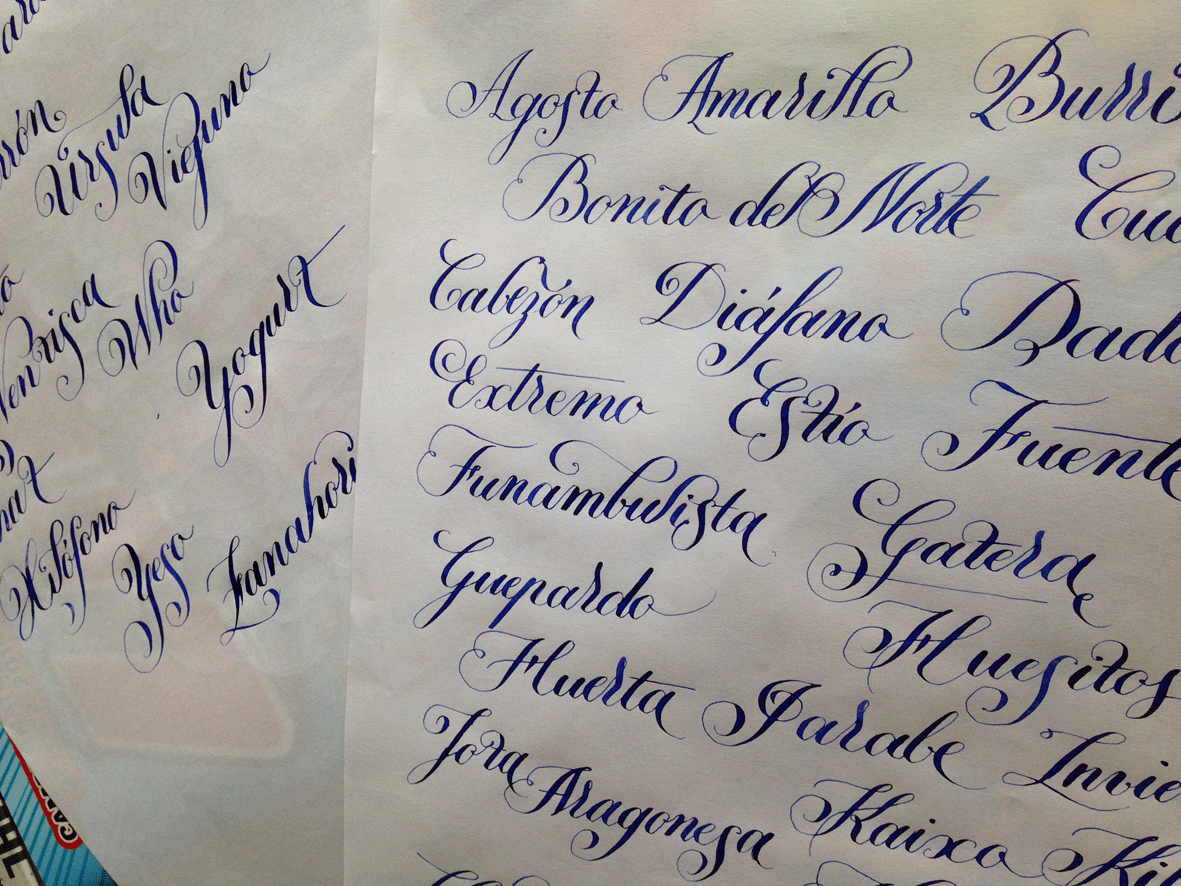 rrón Úrsula Viejuno
Ventisca Who Yogurt
Xilófono Yeso Zanahori
Agosto Amarillo Burri
Bonito del Norte Cuc
Cabezón Diáfano Dado
Extremo Estío Fuente
Funambulista Gatera
Guepardo Huesitos
Huerta Jarabe Invie
Jota Aragonesa Kaixo Ki